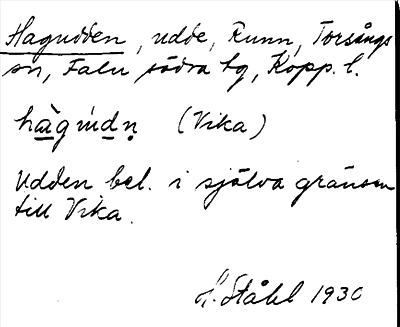 Hagudden, udde, Runn, Torsångs
sn, Falu södra tg, Kopp. l.
hàgúdṇ (Vika)
Udden bel. i själva gränsen
till Vika.
H. Ståhl 1930